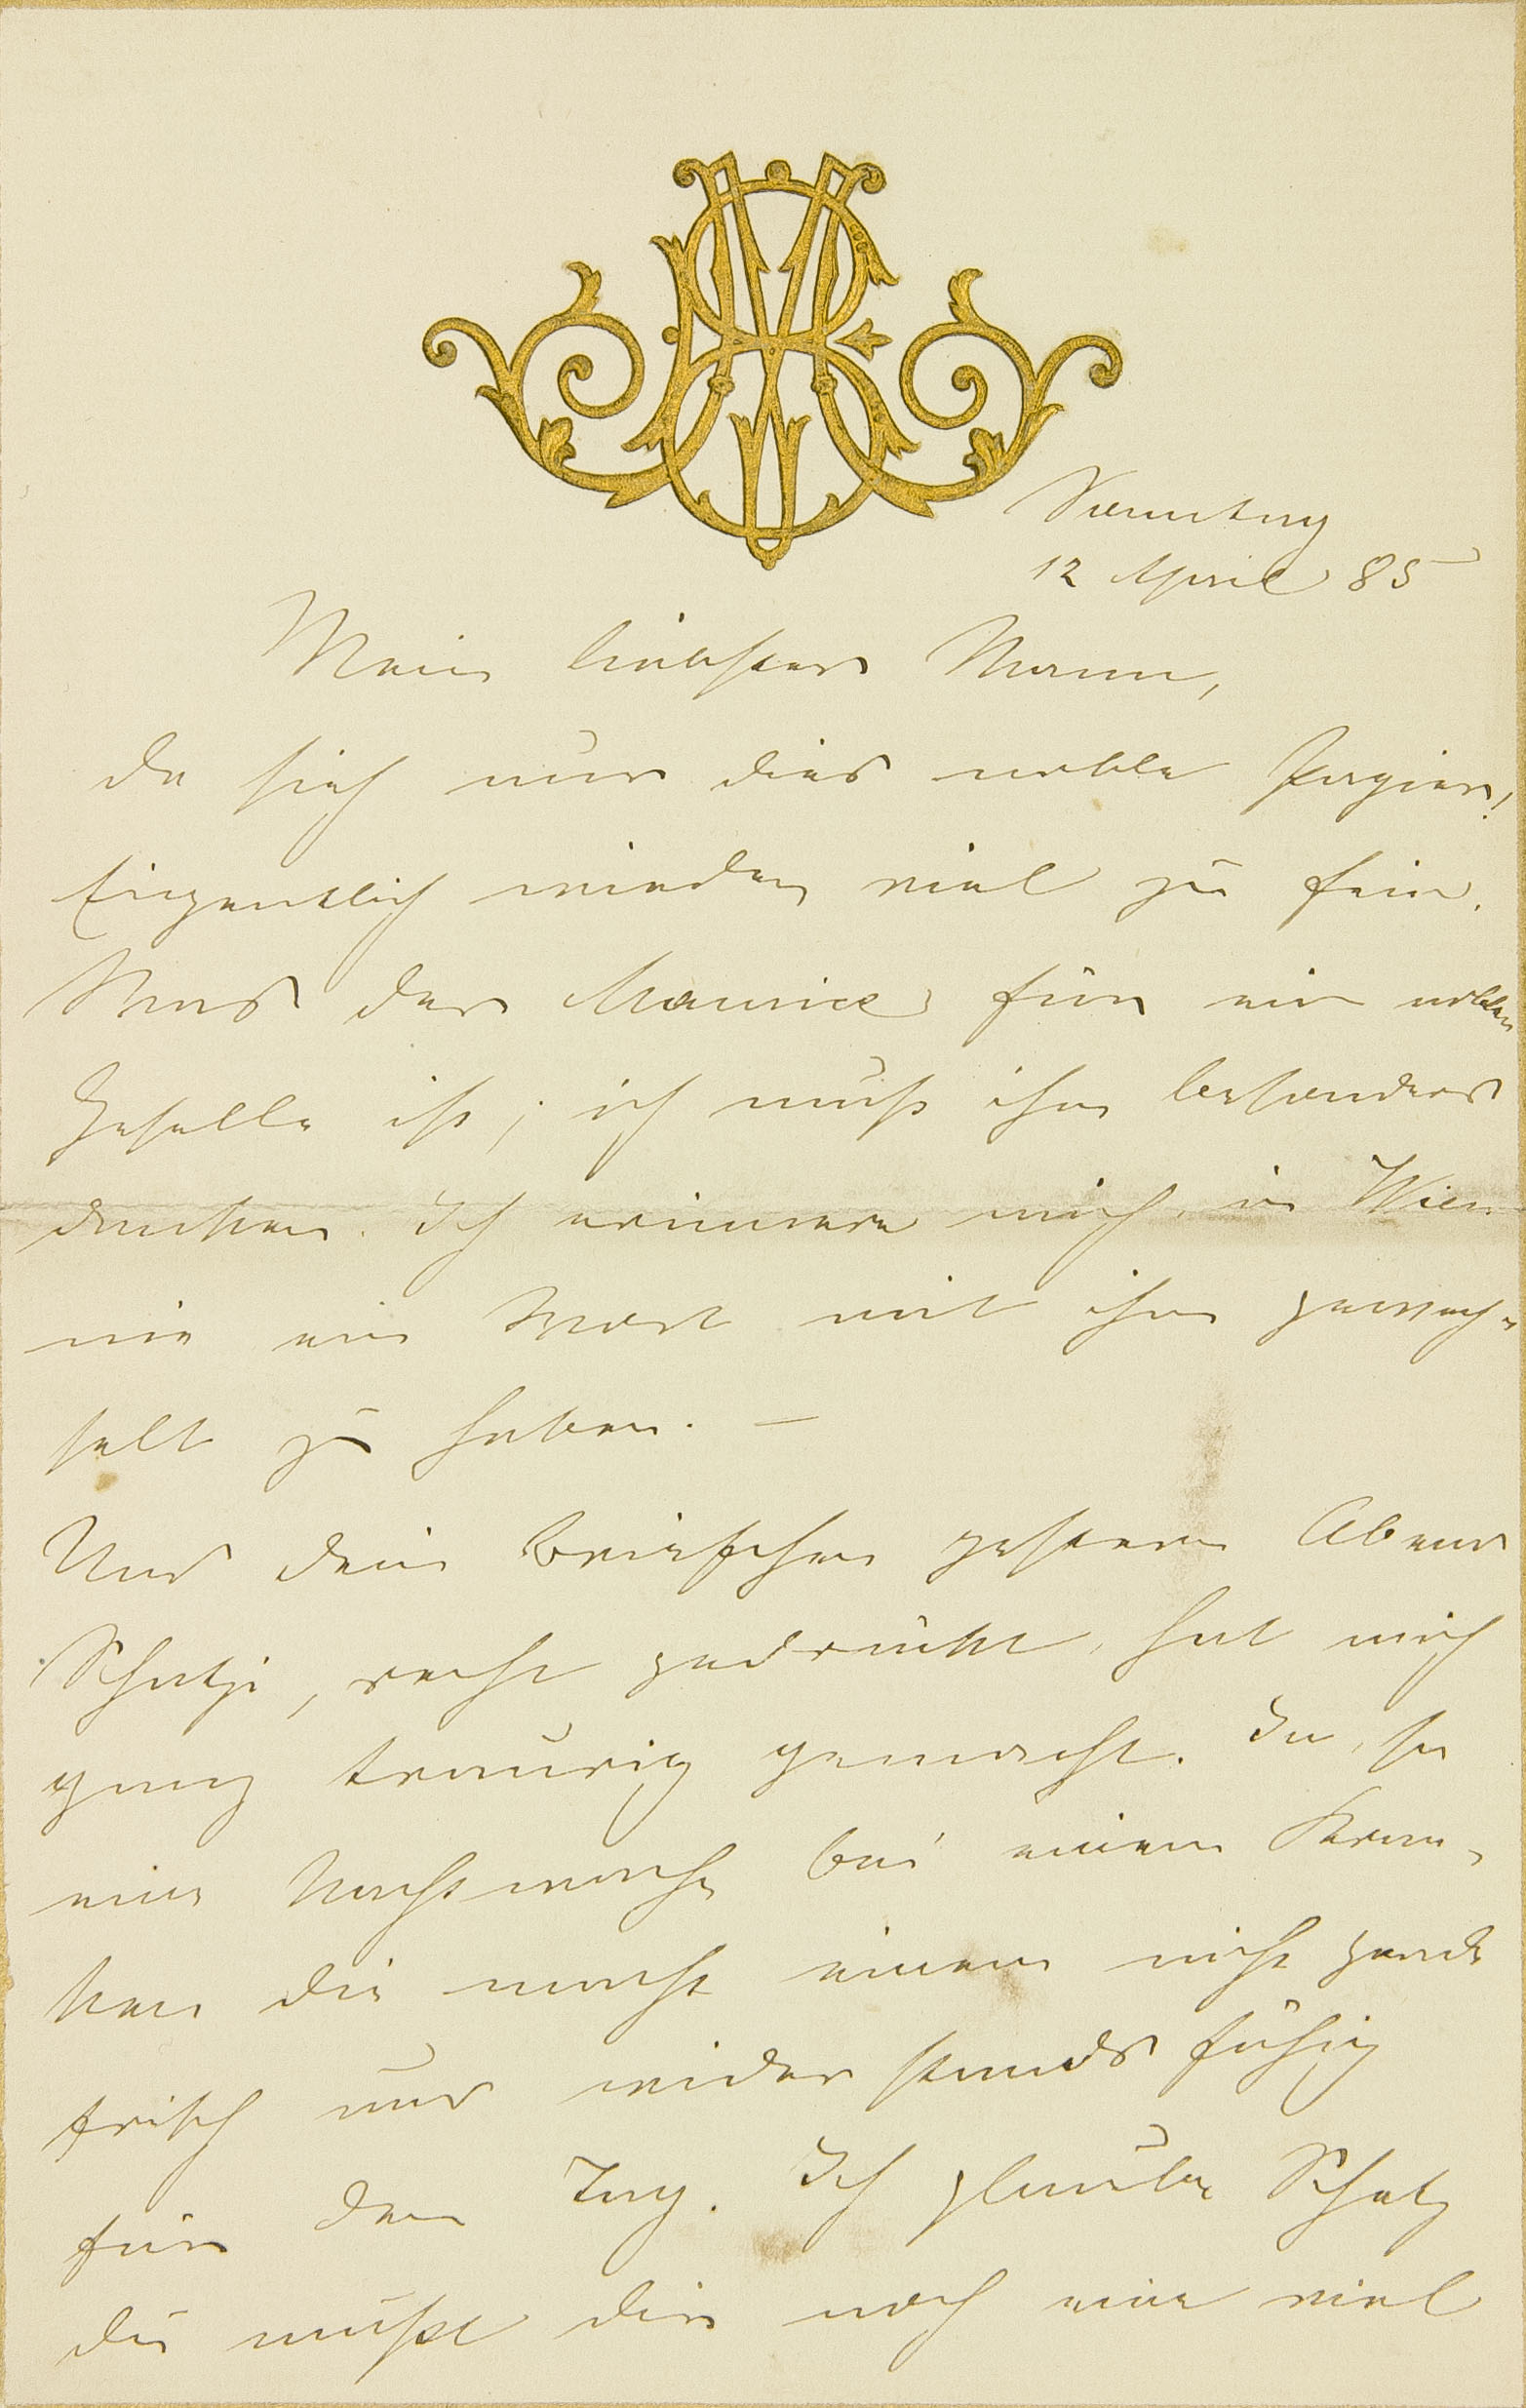 Sonntag
12 April 85
Mein liebster Mann,
da sieh nur dies noble Papier!
Eigentlich wieder viel zu fein.
Was der Maurice für ein nobler
Geselle ist; ich muß ihm besonders
danken. Ich erinnere mich in Wien
nie ein Wort mit ihm gewech-
selt zu haben. –
Und dein Briefchen gestern Abend
Schatzi, recht gedrückt, hat mich
ganz traurig gemacht. Ja, so
eine Nachtwache bei einem Kran-
ken die macht einen nicht grade
frisch und widerstandsfähig
für den Tag. Ich glaube Schatz
du mußt dir noch eine viel